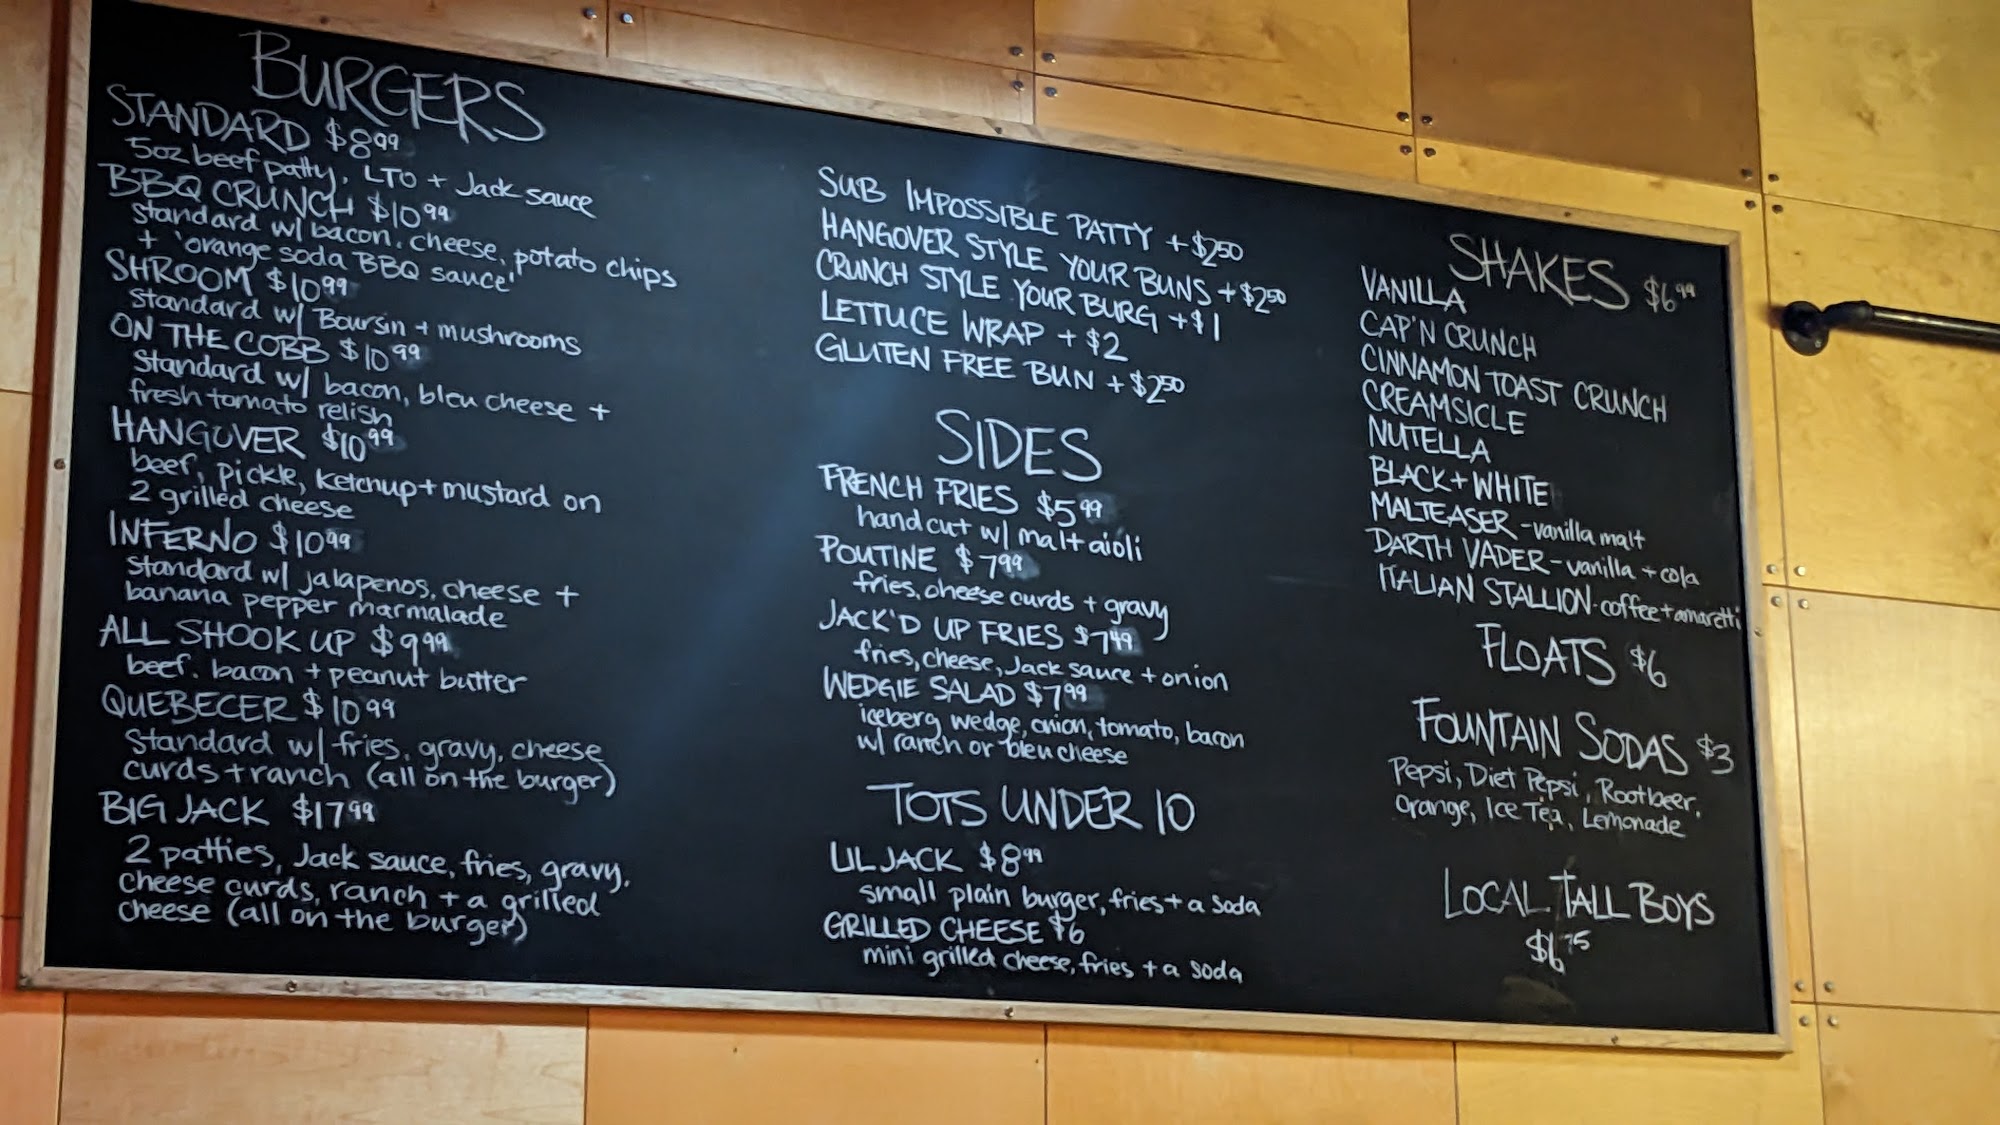 BURGERS
STANDARD $8.99
5oz beef patty, LTO + Jack sauce
BBQ CRUNCH $10.99
standard w/ bacon, cheese, potato chips
+ 'orange soda BBQ sauce'
SHROOM $10.99
standard w/ Boursin + mushrooms
ON THE COBB $10.99
standard w/ bacon, bleu cheese +
fresh tomato relish
HANGOVER $10.99
beef, pickle, ketchup + mustard on
2 grilled cheese
INFERNO $10.99
standard w/ jalapenos, cheese +
banana pepper marmalade
ALL SHOOK UP $9.99
beef. bacon + peanut butter
QUEBECER $10.99
Standard w/ fries, gravy, cheese
curds + ranch (all on the burger)
BIG JACK $17.99
2 patties, Jack sauce, fries, gravy,
cheese curds, ranch + a grilled
cheese (all on the burger)
SUB IMPOSSIBLE PATTY + $2.50
HANGOVER STYLE YOUR BUNS + $2.50
CRUNCH STYLE YOUR BURG + $1
LETTUCE WRAP + $2
GLUTEN FREE BUN + $2.50
SIDES
FRENCH FRIES $5.99
hand cut w/ malt aioli
POUTINE $7.99
fries, cheese curds + gravy
JACK'D UP FRIES $7.49
fries, cheese, Jack sauce + onion
WEDGIE SALAD $7.99
iceberg wedge, onion, tomato, bacon
w/ ranch or bleu cheese
TOTS UNDER 10
LIL JACK $8.99
small plain burger, fries + a soda
GRILLED CHEESE $6
mini grilled cheese, fries + a soda
SHAKES $6.99
VANILLA
CAP'N CRUNCH
CINNAMON TOAST CRUNCH
CREAMSICLE
NUTELLA
BLACK + WHITE
MALTEASER - vanilla malt
DARTH VADER - vanilla + cola
ITALIAN STALLION - coffee + amaretti
FLOATS $6
FOUNTAIN SODAS $3
Pepsi, Diet Pepsi, Rootbeer,
Orange, Ice Tea, Lemonade
LOCAL TALL BOYS
$6.75